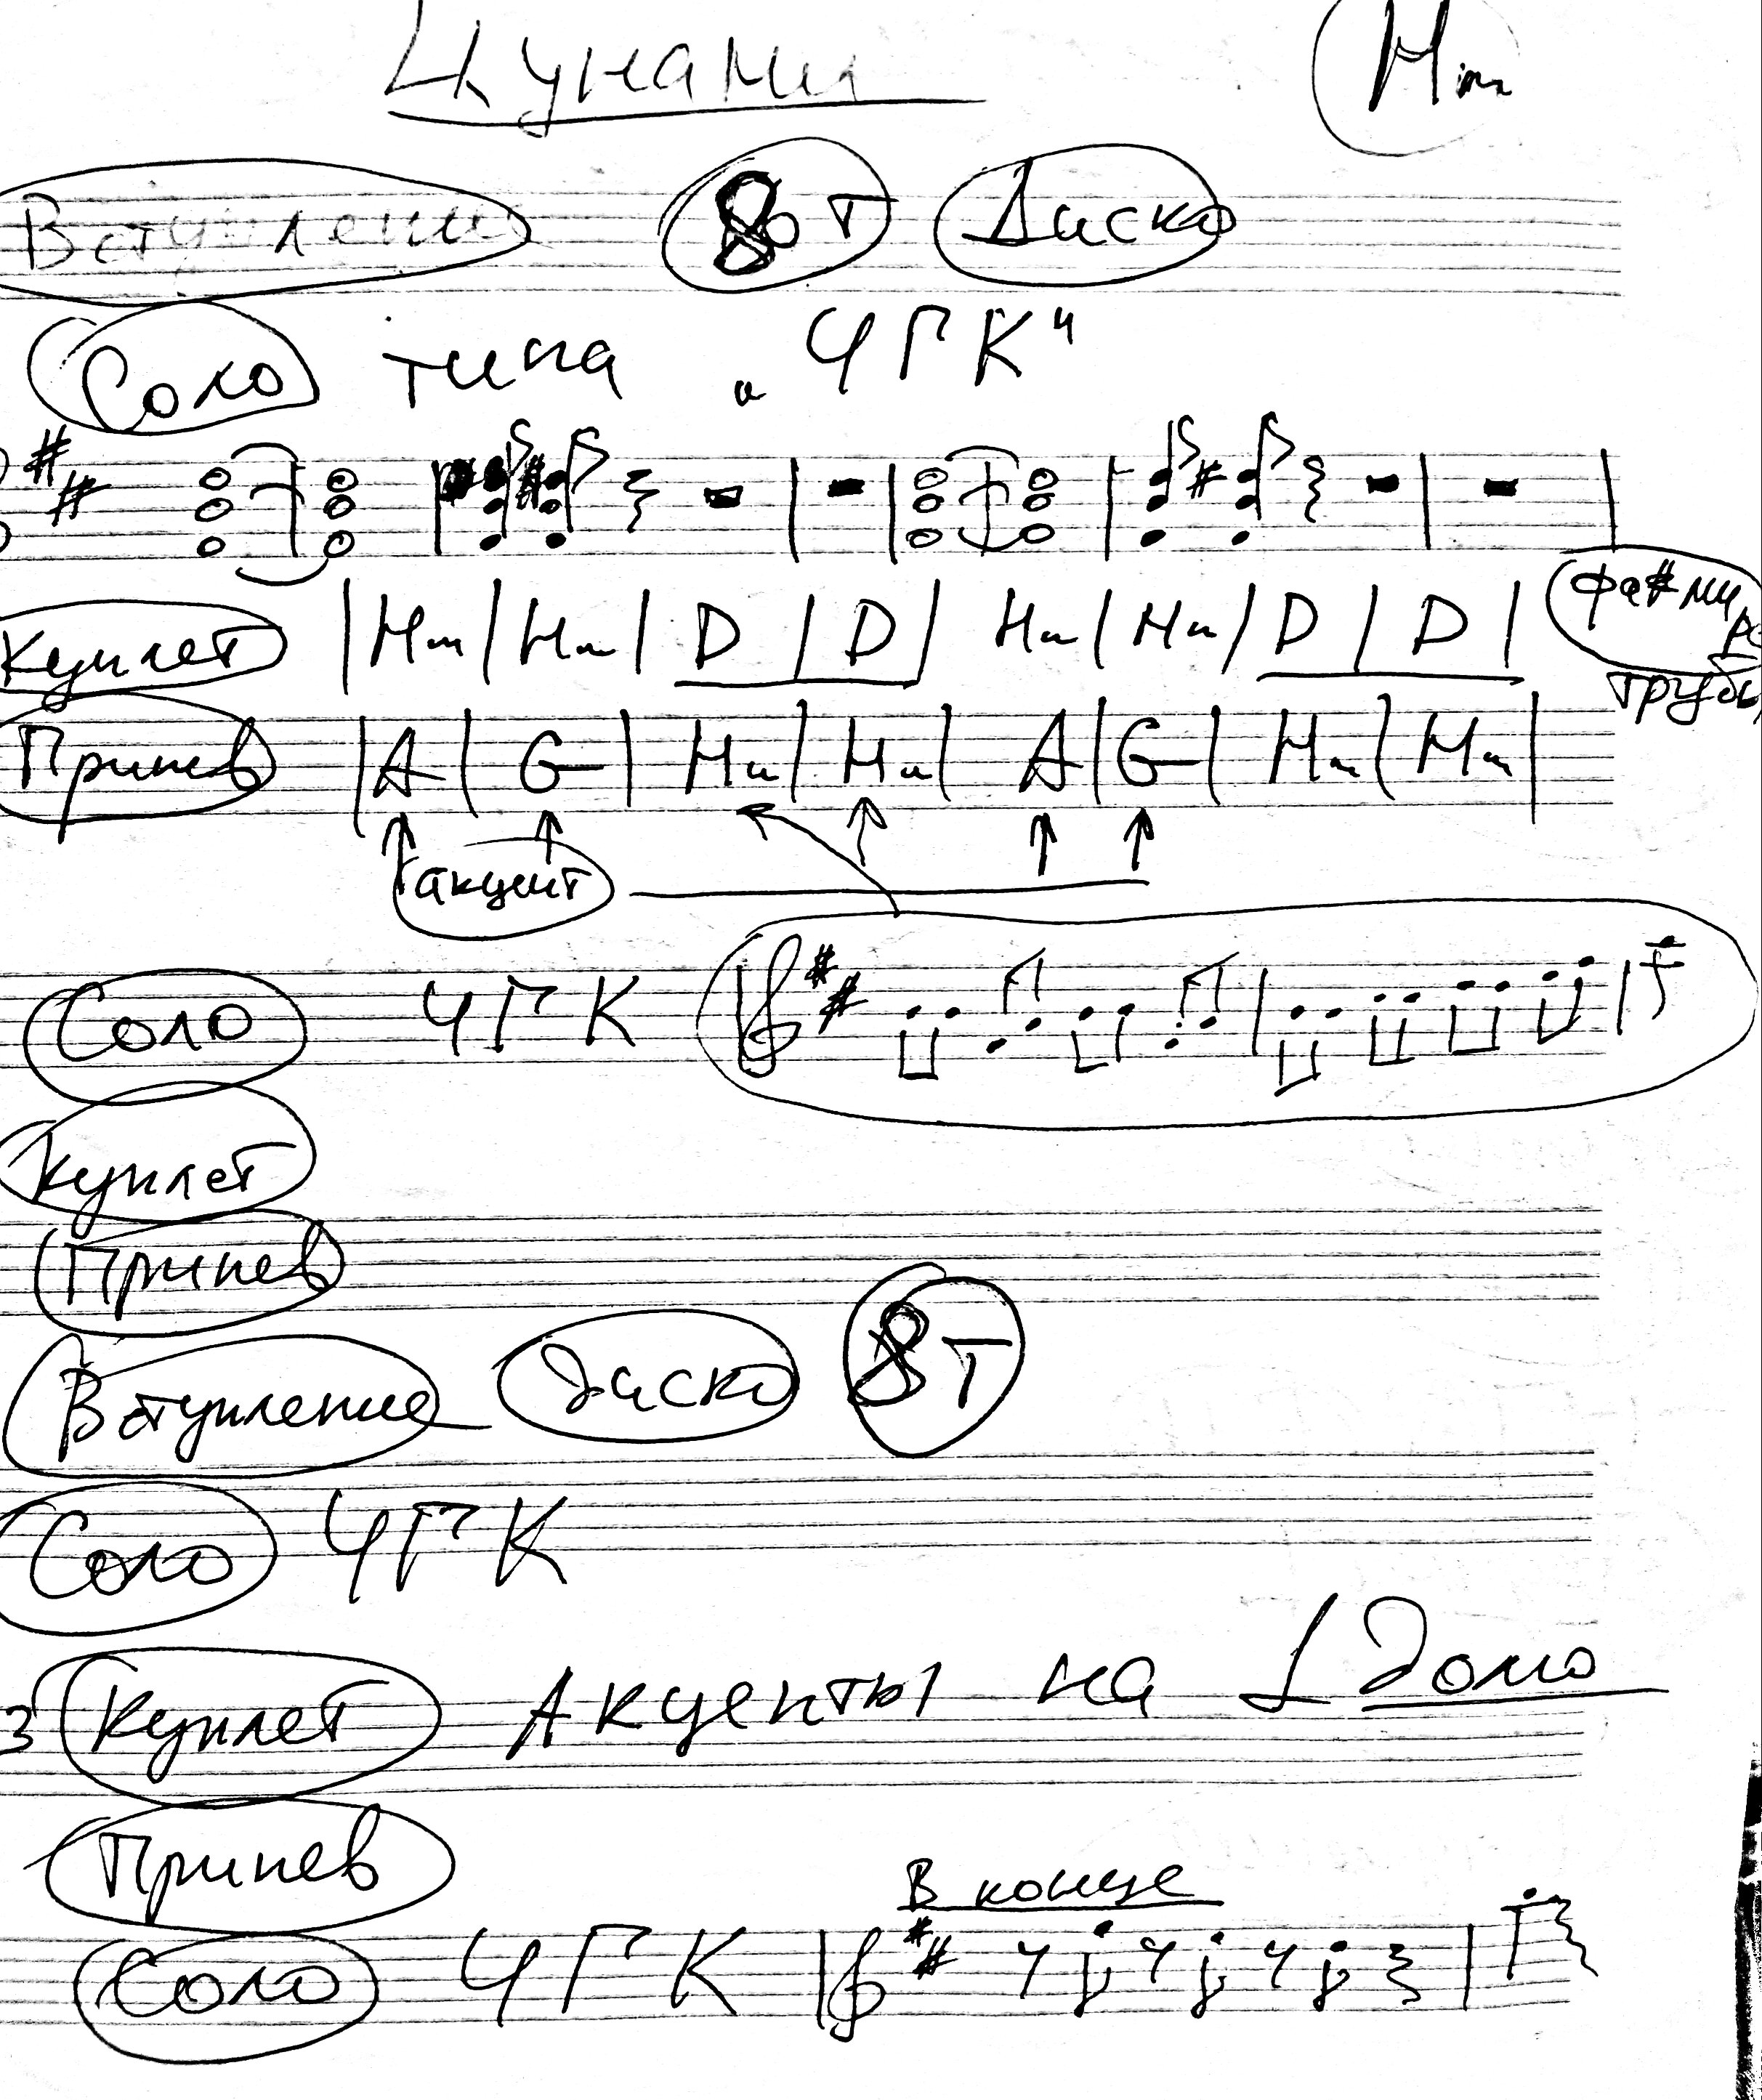 Цунами Hm
Вступление 8 т Диско
Соло типа „ЧГК"
Куплет | Hm | Hm | D | D | Hm | Hm | D | D | фа# ми
трубы
Припев | A | G | Hm | Hm | A | G | Hm | Hm |
акцент
Соло ЧГК
Куплет
Припев
Вступление Диско 8 т
Соло ЧГК
3 Куплет Акценты на 1 долю
Припев
В конце
Соло ЧГК